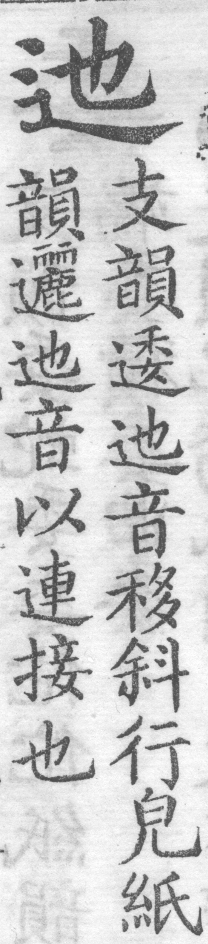 迆
支韻逶迆音移斜行皃紙
韻邐迆音以連接也